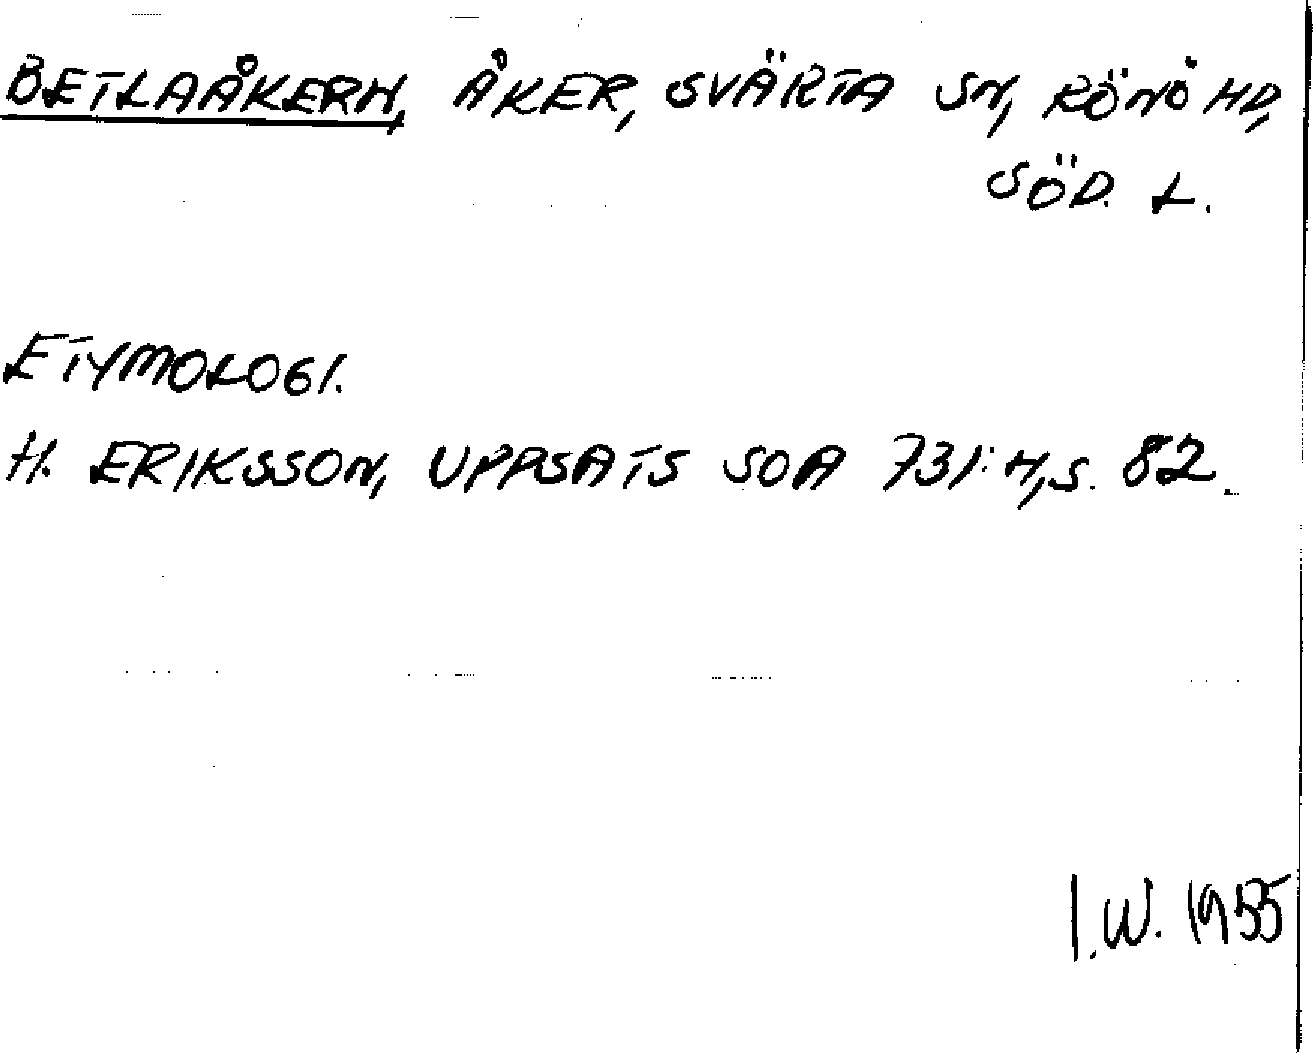 BETLAÅKERN, ÅKER, SVÄRTA SN, RÖNÖ HD,
SÖD. L.
ETYMOLOGI.
H. ERIKSSON, UPPSATS SOA 731:4, S. 82.
I.W. 1955